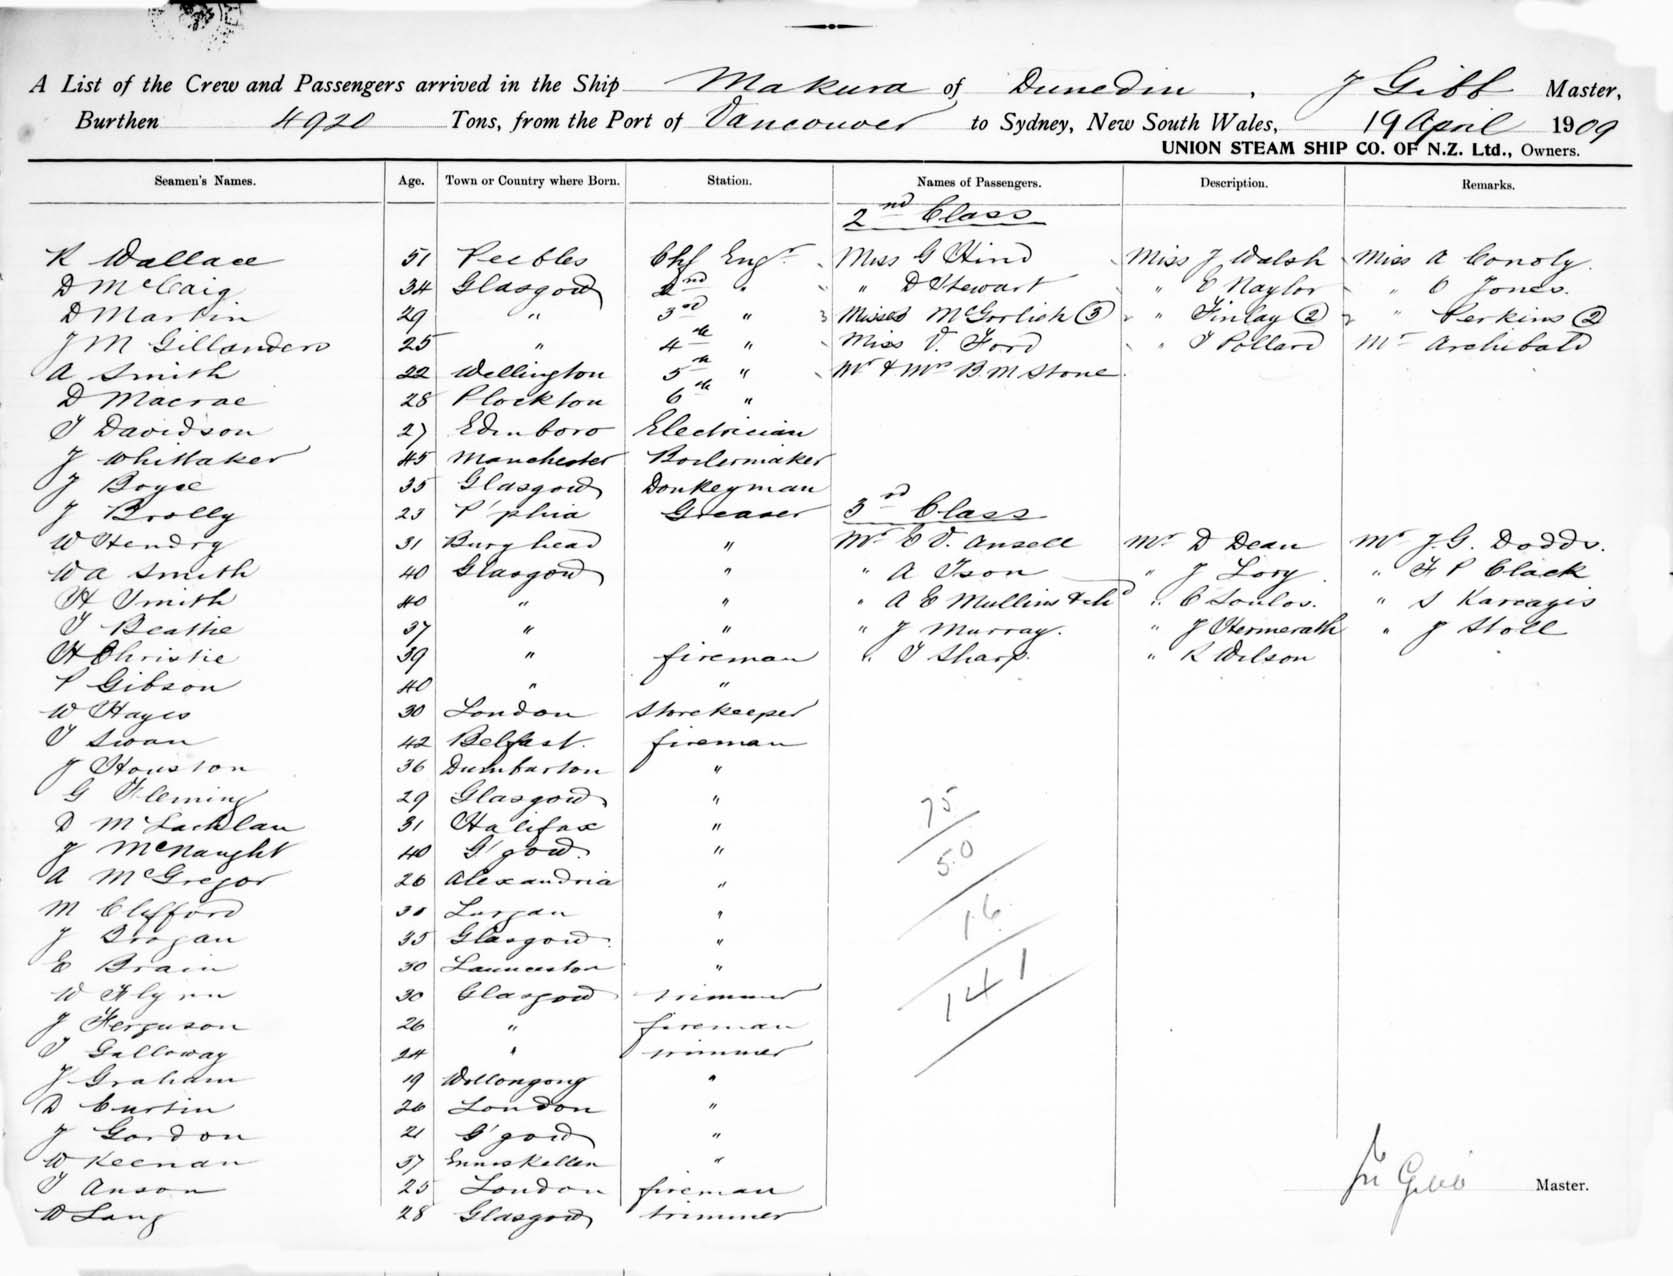 A List of the Crew and Passengers arrived in the Ship Makura of Dunedin, J Gibb Master,
Burthen 4920 Tons, from the Port of Vancouver to Sydney, New South Wales, 19 April 1909
UNION STEAM SHIP CO. OF N.Z. Ltd., Owners.
Seamen's Names. Age. Town or Country where Born. Station. Names of Passengers. Description. Remarks.
2nd Class
R Wallace 51 Peebles Chf Engr Miss G Hind Miss J Walsh Miss A Conoly.
D McCaig 34 Glasgow 2nd " " D Stewart " E Naylor " O Jones.
D Martin 29 " 3rd " Misses McGorlick (3) " Finlay (2) " Perkins (2)
J M Gillanders 25 " 4th " Miss V. Ford " T Pollard Mr Archibald
A Smith 22 Wellington 5th " Mr & Mrs B M Stone
D Macrae 28 Plockton 6th "
T Davidson 27 Edinboro Electrician
J Whittaker 45 Manchester Boilermaker
J Boyce 35 Glasgow Donkeyman
J Brolly 23 P'phia Greaser 3rd Class
W Hendry 31 Burghead " Mr E V. Ansell Mr D Dean Mr J. G. Dodds.
W A Smith 40 Glasgow " " A Ison " J Lory " F P Clack
H Smith 40 " " " A E Mullins & chd " C Soulos. " S Karcagis
T Beattie 37 " " " J Murray. " J Hermerath " J Stoll
H Christie 39 " fireman " T Sharp. " R Wilson
P Gibson 40 " "
W Hayes 30 London Storekeeper
T Swan 42 Belfast. fireman
J Houston 36 Dumbarton "
G Fleming 29 Glasgow "
D McLachlan 31 Halifax "
J McNaught 40 G'gow. "
A McGregor 26 Alexandria "
M Clifford 30 Lurgan "
J Brogan 35 Glasgow "
E Brain 30 Launceston "
W Flynn 30 Glasgow trimmer
J Ferguson 26 " fireman
T Galloway 24 " trimmer
J Graham 19 Wollongong "
D Curtin 26 London "
J Gordon 21 G'gow "
W Keenan 37 Enniskellen "
T Anson 25 London fireman
W Lang 28 Glasgow trimmer
75
50
16
141
Jn Gibb Master.